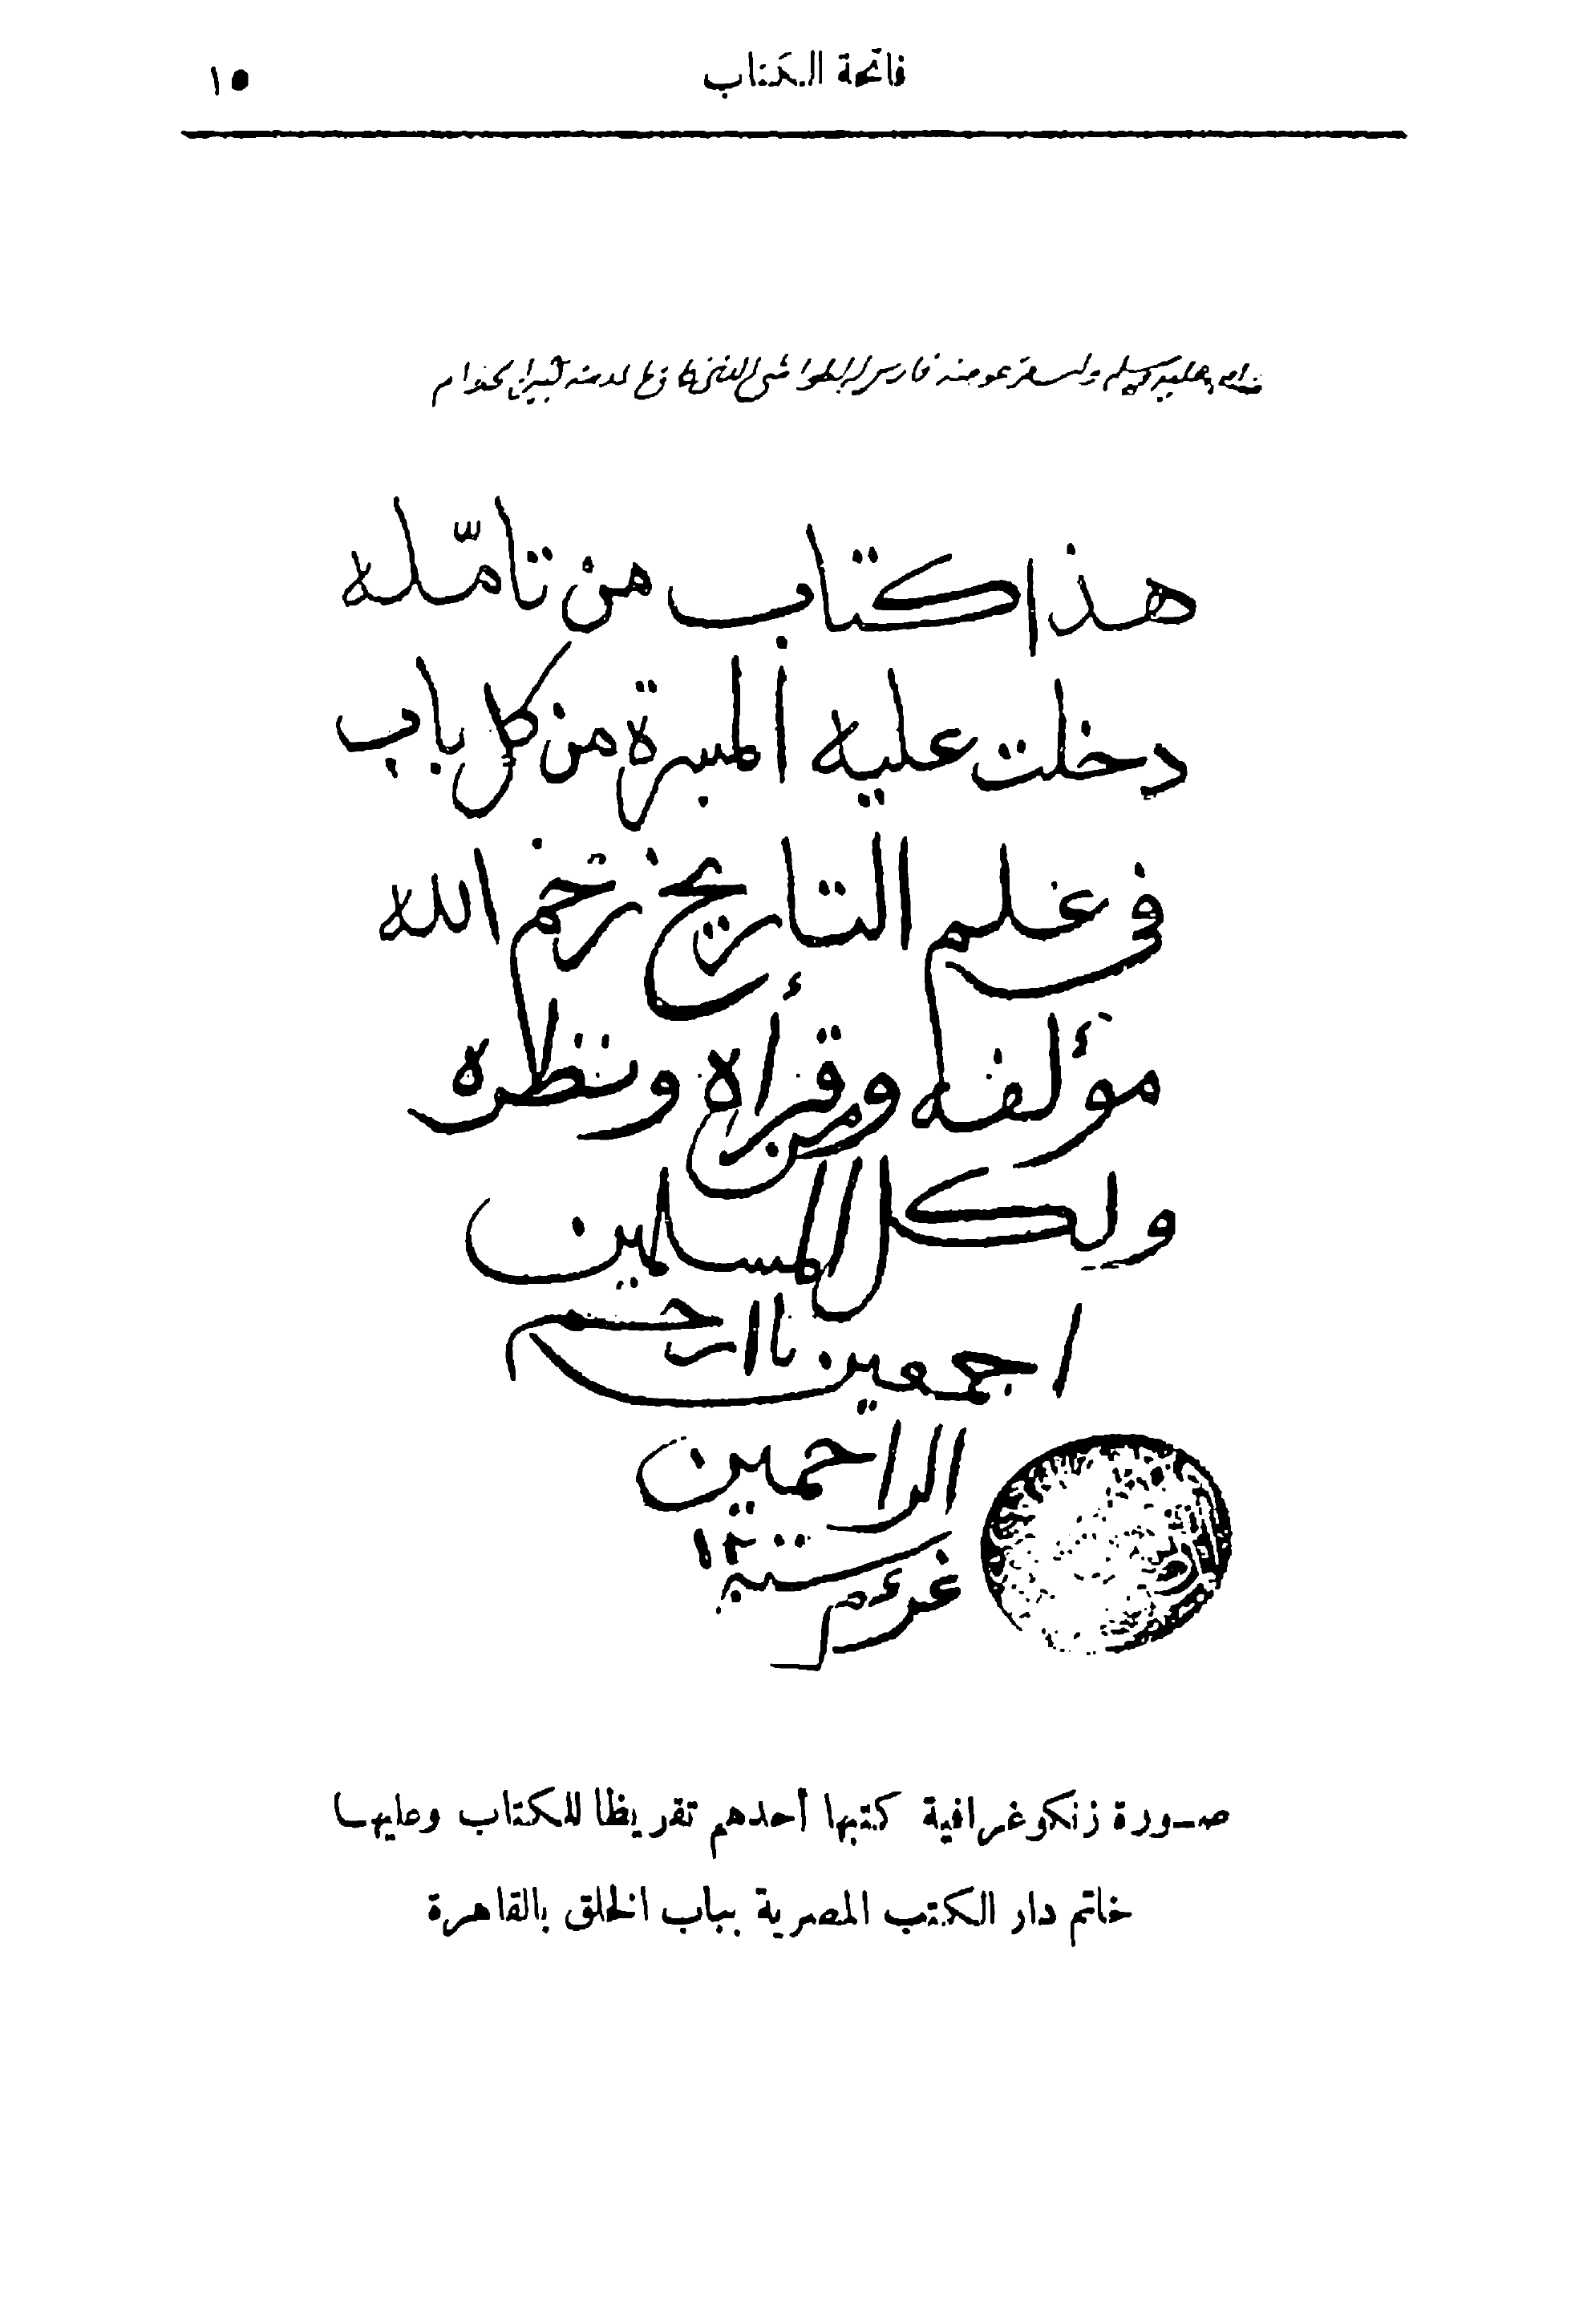 فاتحة الكتاب ١٥
عليه وسلم
هذا كتاب من تأمّله
دخلت عليه المسرة من كل باب
في علم التاريخ رحم الله
مؤلفه ومن قرأه ونظره
ولكل المسلمين
اجمعين يا ارحم
الراحمين
سنة ١٢٠٠
صورة زنكوغرافية كتبها أحدهم تقريظا للكتاب وعليها
خاتم دار الكتب المصرية بباب الخلق بالقاهرة